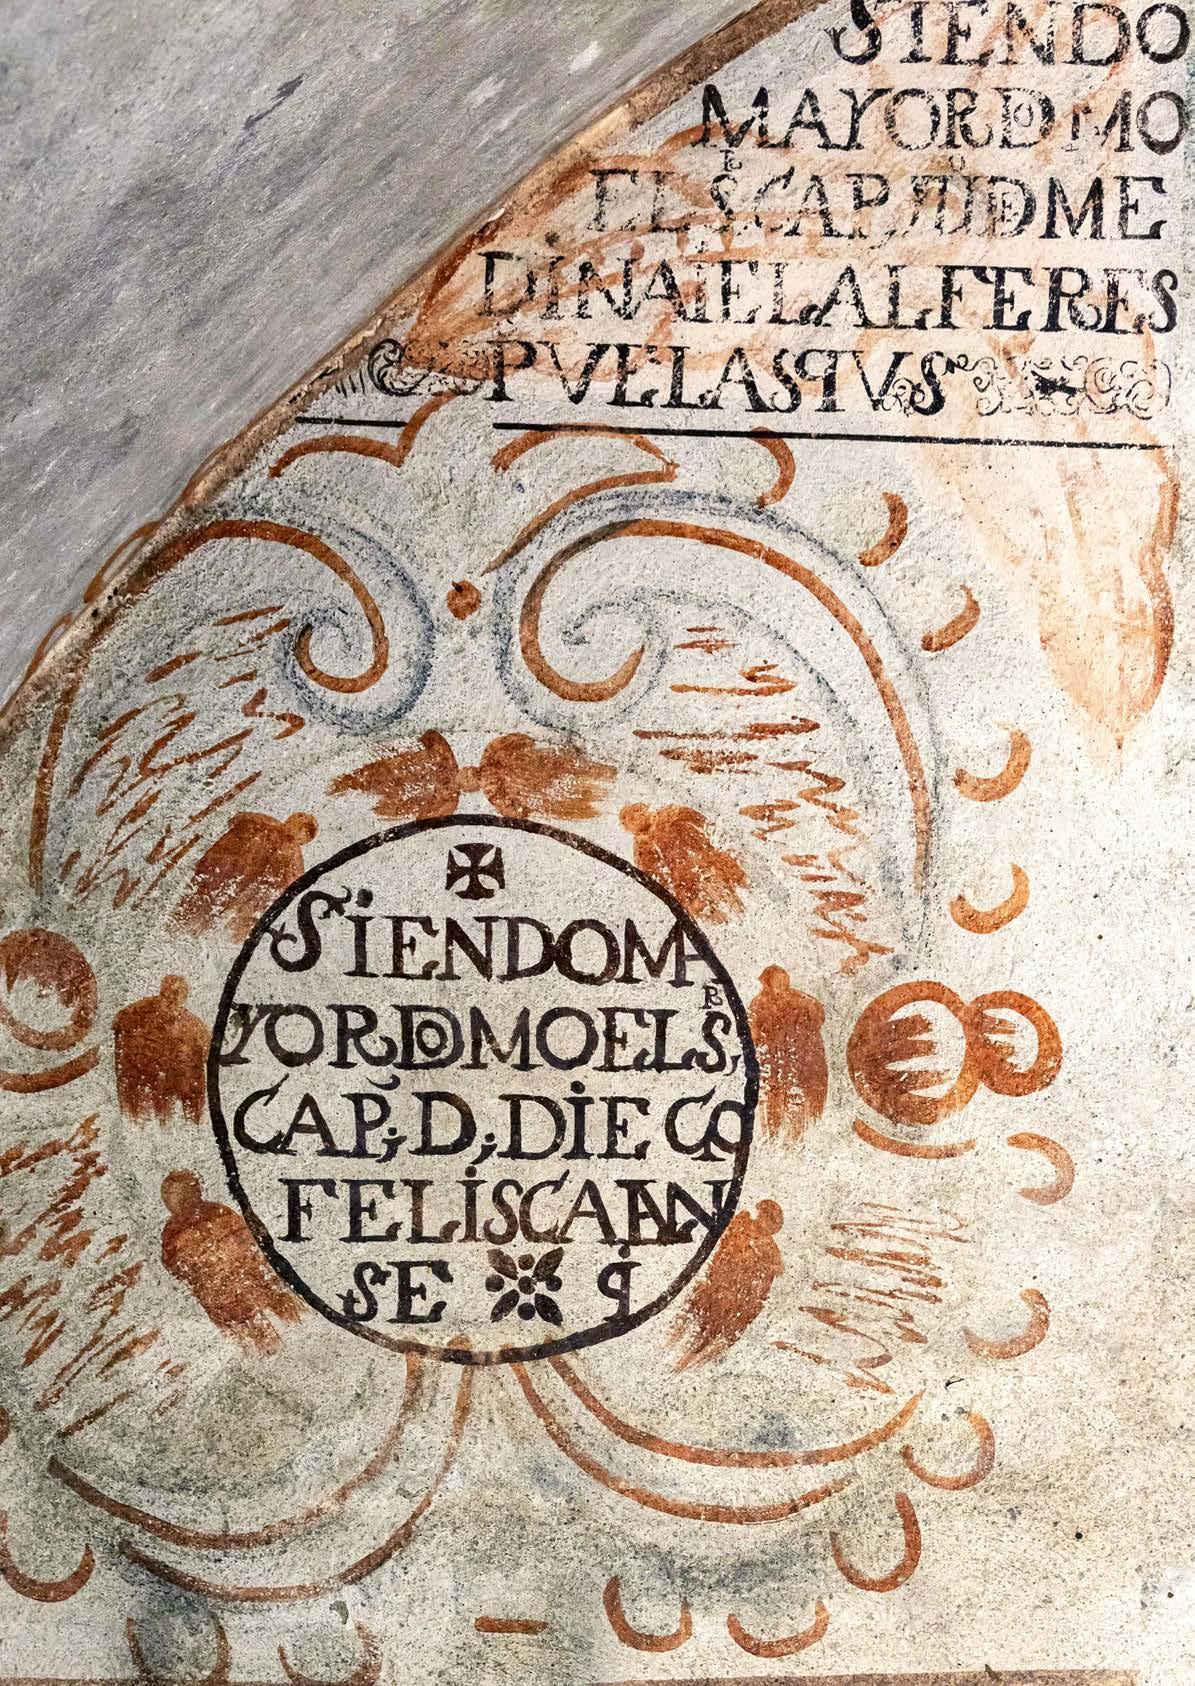 SIENDO
MAYORDOMO
EL SR CAP JUO D ME
DINA I EL ALFERES
P VELASQVS
SIENDO MA
YORDOMO EL SR
CAP; D; DIEGO
FELIS CABAN
SE q